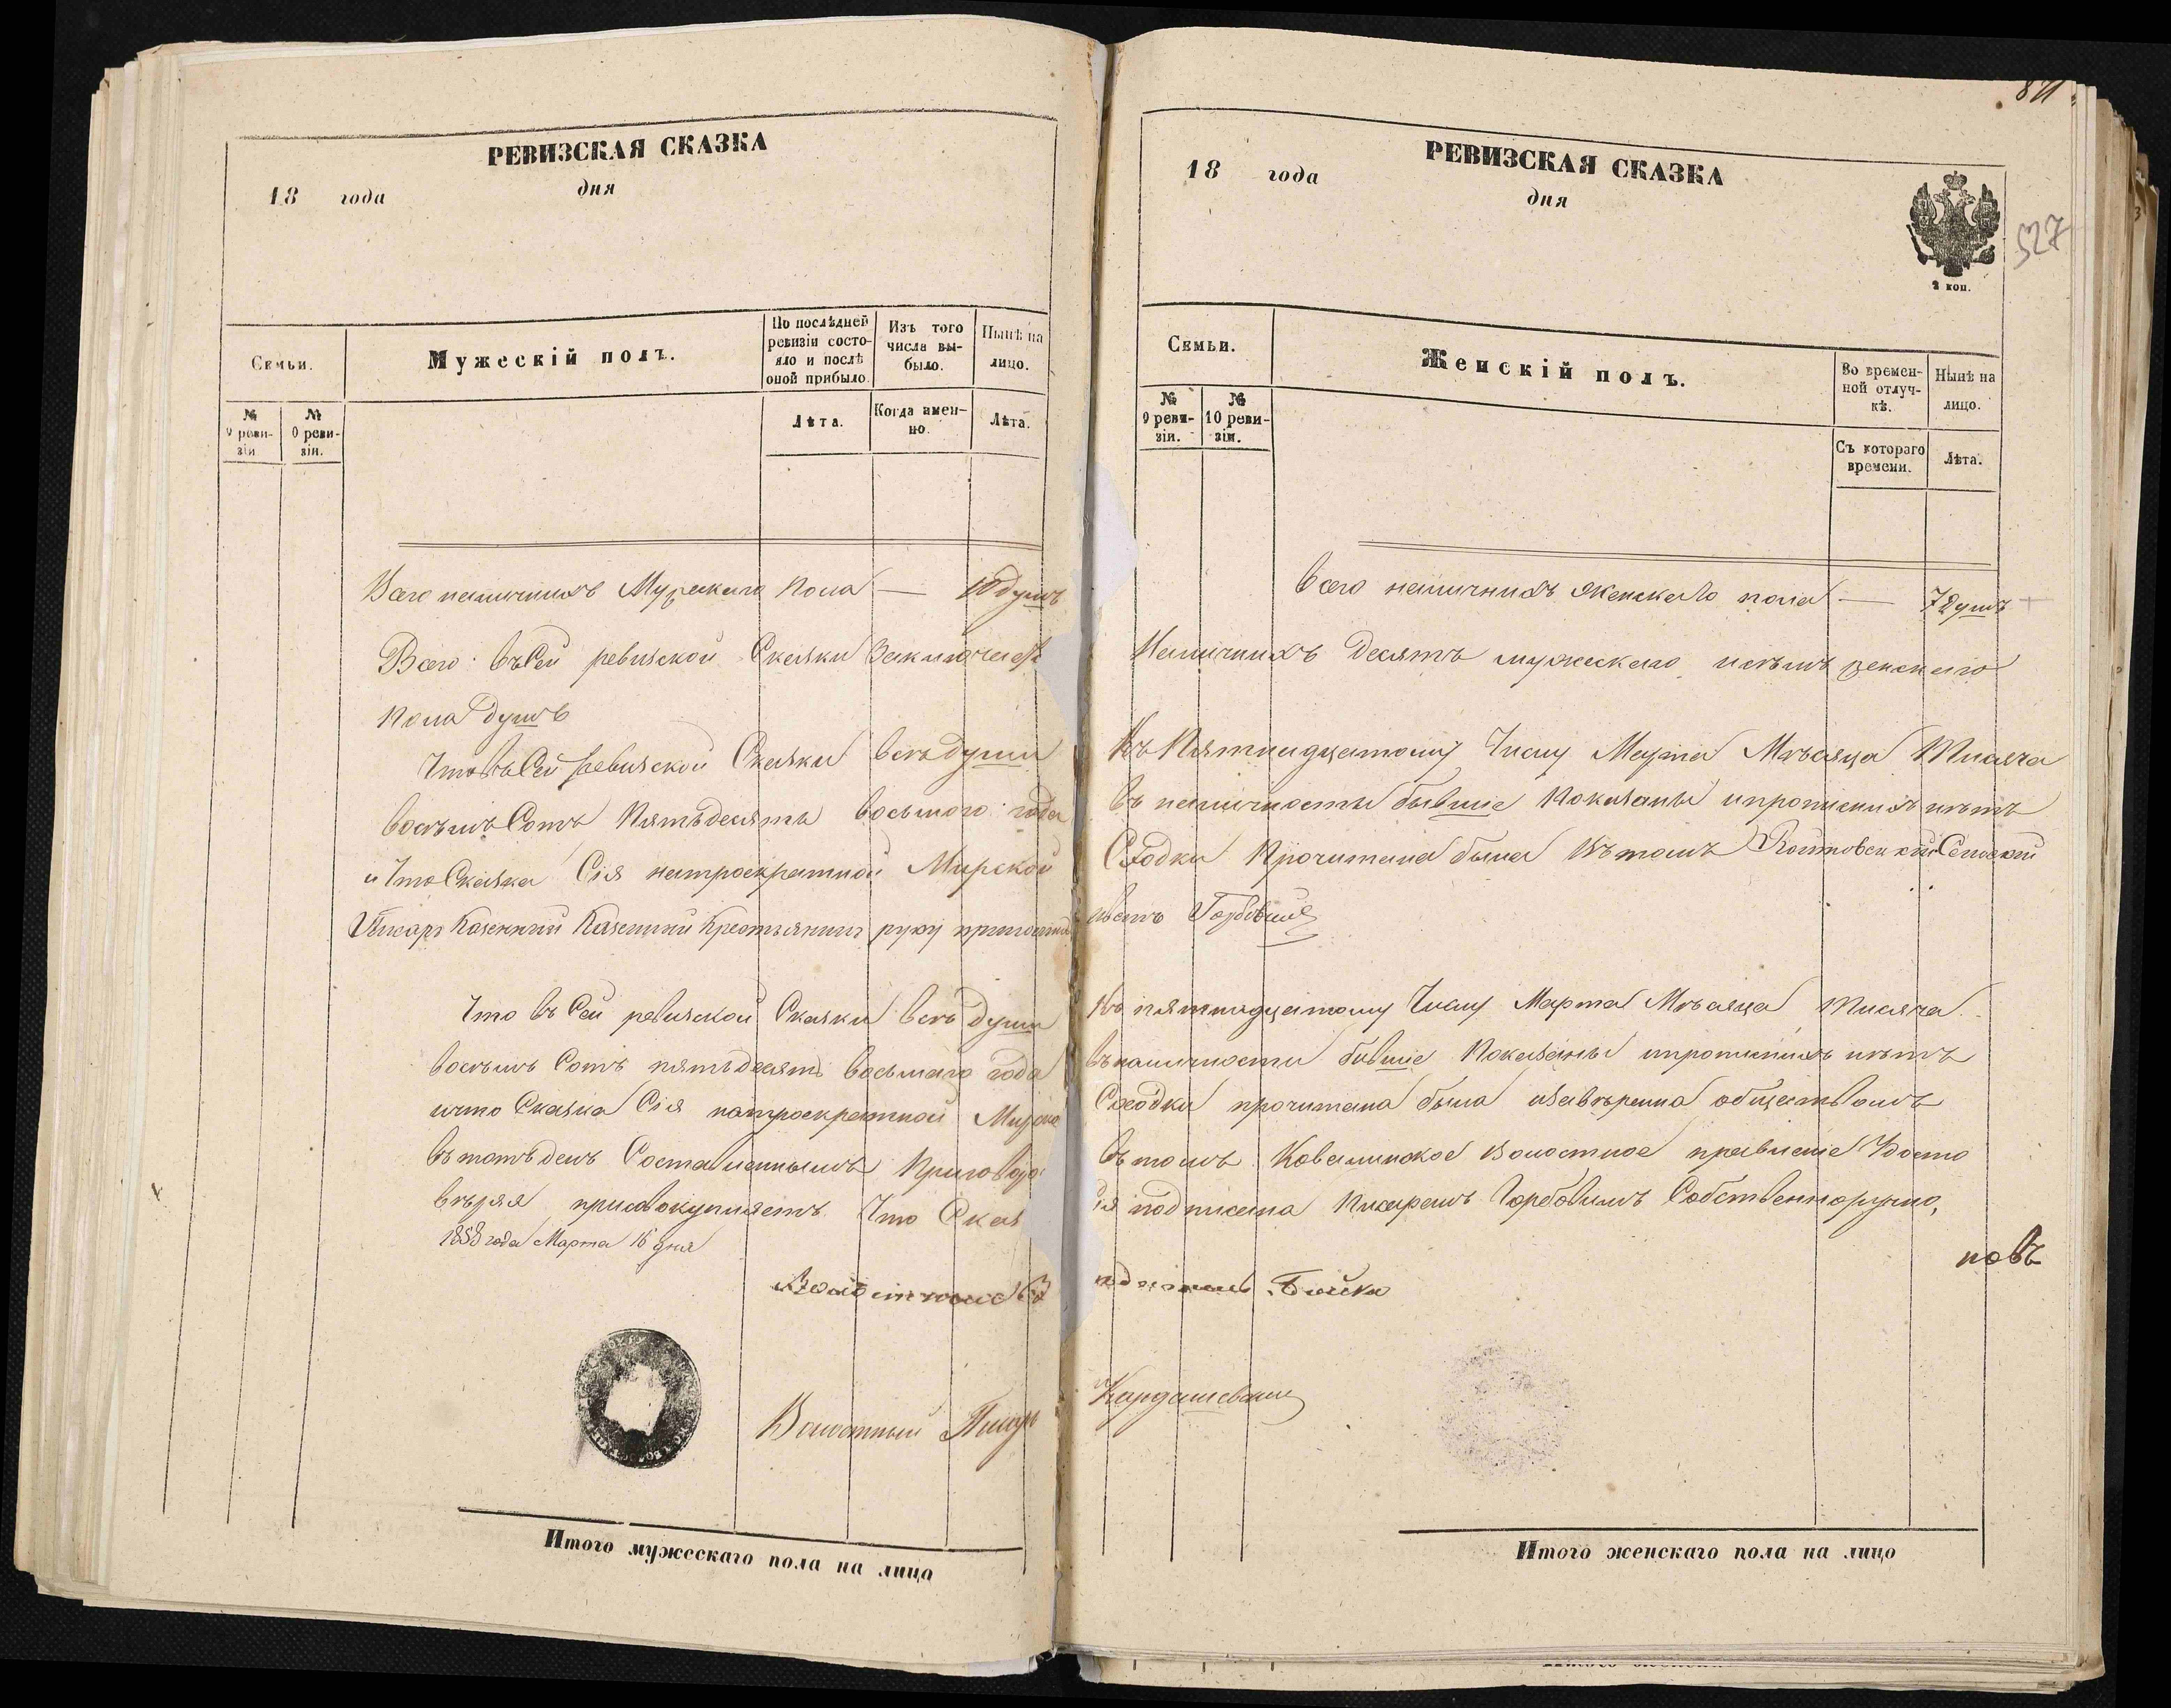 РЕВИЗСКАЯ СКАЗКА
18 года дня
Семьи.
Мужескій полъ.
По послѣдней ревизіи состояло и послѣ оной прибыло.
Изъ того числа выбыло.
Нынѣ на лицо.
№ 9 ревизіи
№ 0 ревизіи.
Лѣта.
Когда именно.
Лѣта.
Всего наличныхъ Мужскаго Пола — 10 душъ
Всего въ Сей ревизской Скажки Заключается
Пола душъ
Что въ Сей ревизской Скажки всѣ души
восѣмъ Сотъ Пятьдесятъ восьмого года
и Что Скажка Сія на троекратной Мирской
Писарь Казенный Казенный Крестьянинъ руку приложилъ
Что въ Сей ревизской Скажки всѣ души
восѣмъ Сотъ пятьдесятъ восьмаго года
и что Скажка Сія на троекратной Мирско
въ тотъ день Составленнымъ Приговоро
вѣряя присовокупляетъ Что Скаж
1858 года Марта 15 дня
Волостной
Волостный Писарь
Итого мужескаго пола на лицо
871
РЕВИЗСКАЯ СКАЗКА
18 года дня
2 коп.
527
Семьи.
Женскій полъ.
Во временной отлучкѣ.
Нынѣ на лицо.
№ 9 ревизіи.
№ 10 ревизіи.
Съ котораго времени.
Лѣта.
Всего наличныхъ женскаго пола — 7 душъ
Наличныхъ десять мужескаго, и семъ женскаго
Къ Пятнадцатому Числу Марта Мѣсяца Тисяча
въ наличности бывшіе Показаны и прописныхъ нѣтъ
Сходки Прочитана была Въ томъ Сельскій
Горбовий
Къ пятнадцатому Числу Марта Мѣсяца Тисяча
въ наличности бывшіе Показаны и прописныхъ нѣтъ
Сходки прочитана была и завѣренна обществомъ
въ томъ Ковалинское Волостное правленіе Удосто
Сія подписана Писаремъ Горбовимъ Собственноручно,
повъ
Бойко
Кардашевский
Итого женскаго пола на лицо